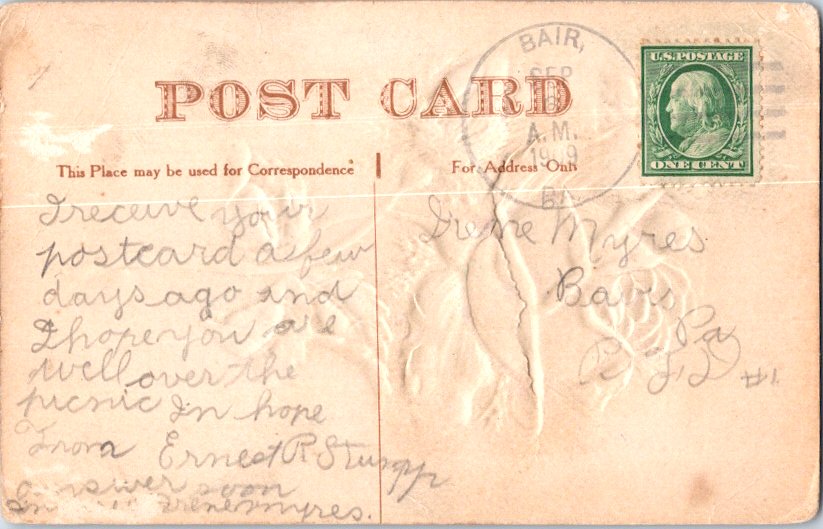 POST CARD
BAIR,
SEP
A.M.
1909
PA.
U.S. POSTAGE
ONE CENT
This Place may be used for Correspondence
For Address Only
I receive your
postcard a few
days ago and
I hope you are
well over the
picnic In hope
From Ernest R Stumpp
answer soon
Irene myres.
Irene Myres
Bairs
Pa
R F D #1